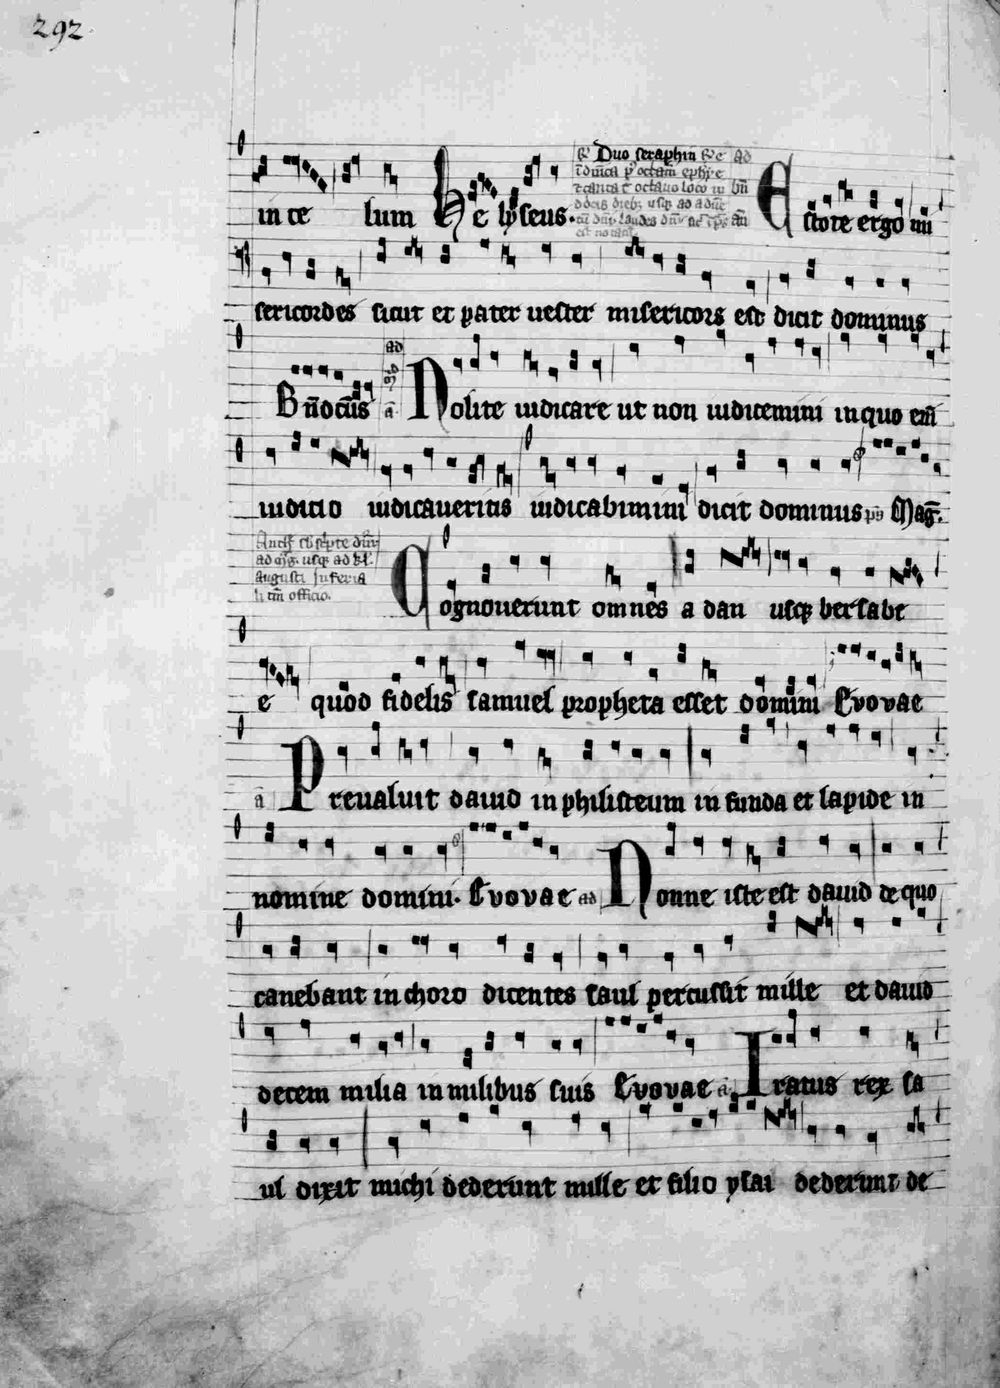 292
in ce lum Helyseus. Estote ergo mi
Duo seraphin
sericordes sicut et pater uester misericors est dicit dominus
ad
Bn̄ocūs ā Nolite iudicare ut non iudicemini in quo em̄
iudicio iudicaueritis iudicabimini dicit dominus ps̄ Maḡ.
augusti
officio.
Cognouerunt omnes a dan usq bersabe
e quod fidelis samuel propheta esset domini Evovae
ā Preualuit dauid in philisteum in funda et lapide in
nomine domini. Evovae ad Nonne iste est dauid de quo
canebant in choro dicentes saul percussit mille et dauid
decem milia in milibus suis Evovae ā. Iratus rex sa
ul dixit michi dederunt mille et filio ysai dederunt de